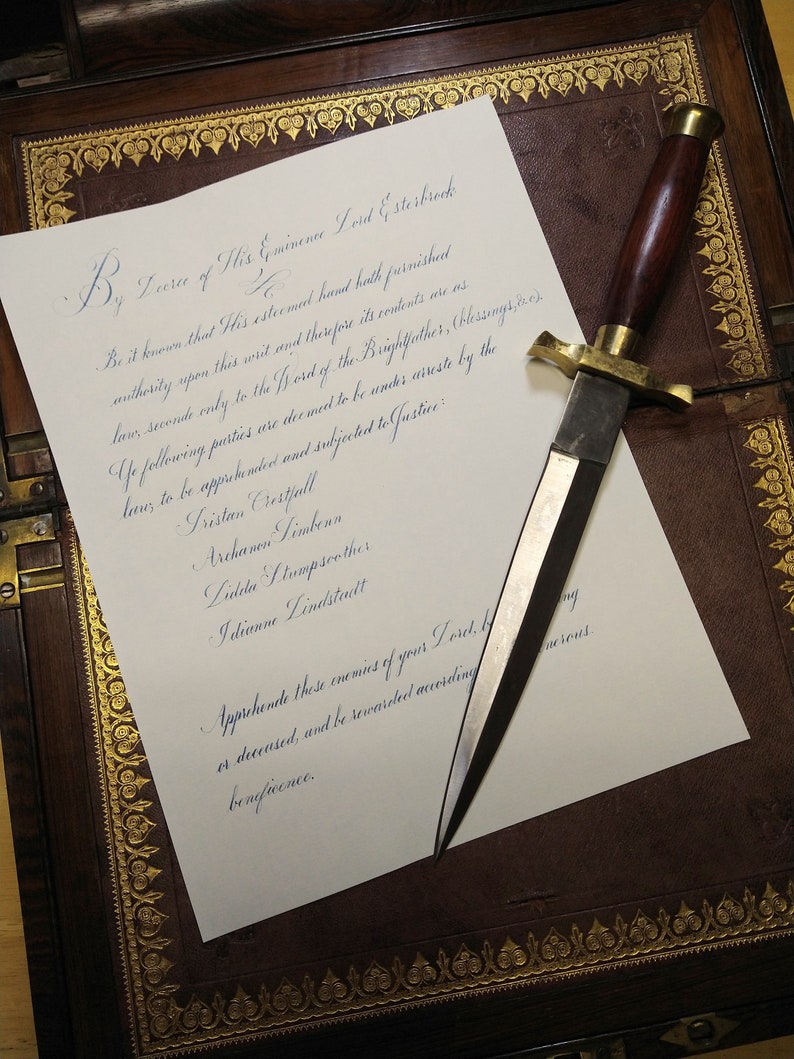 By Decree of His Eminence Lord Esterbrook
Be it known that His esteemed hand hath furnished
authority upon this writ and therefore its contents are as
law, seconde only to the Word of the Brightfather, (blessings, &c).
Ye following parties are deemed to be under arreste by the
law; to be apprehended and subjected to Justice:
Tristan Crestfall
Archanon Timbenn
Lidda Stumpsoother
Idianne Lindstadt
Apprehende these enemies of your Lord,
or deceased, and be rewarded according
beneficence.